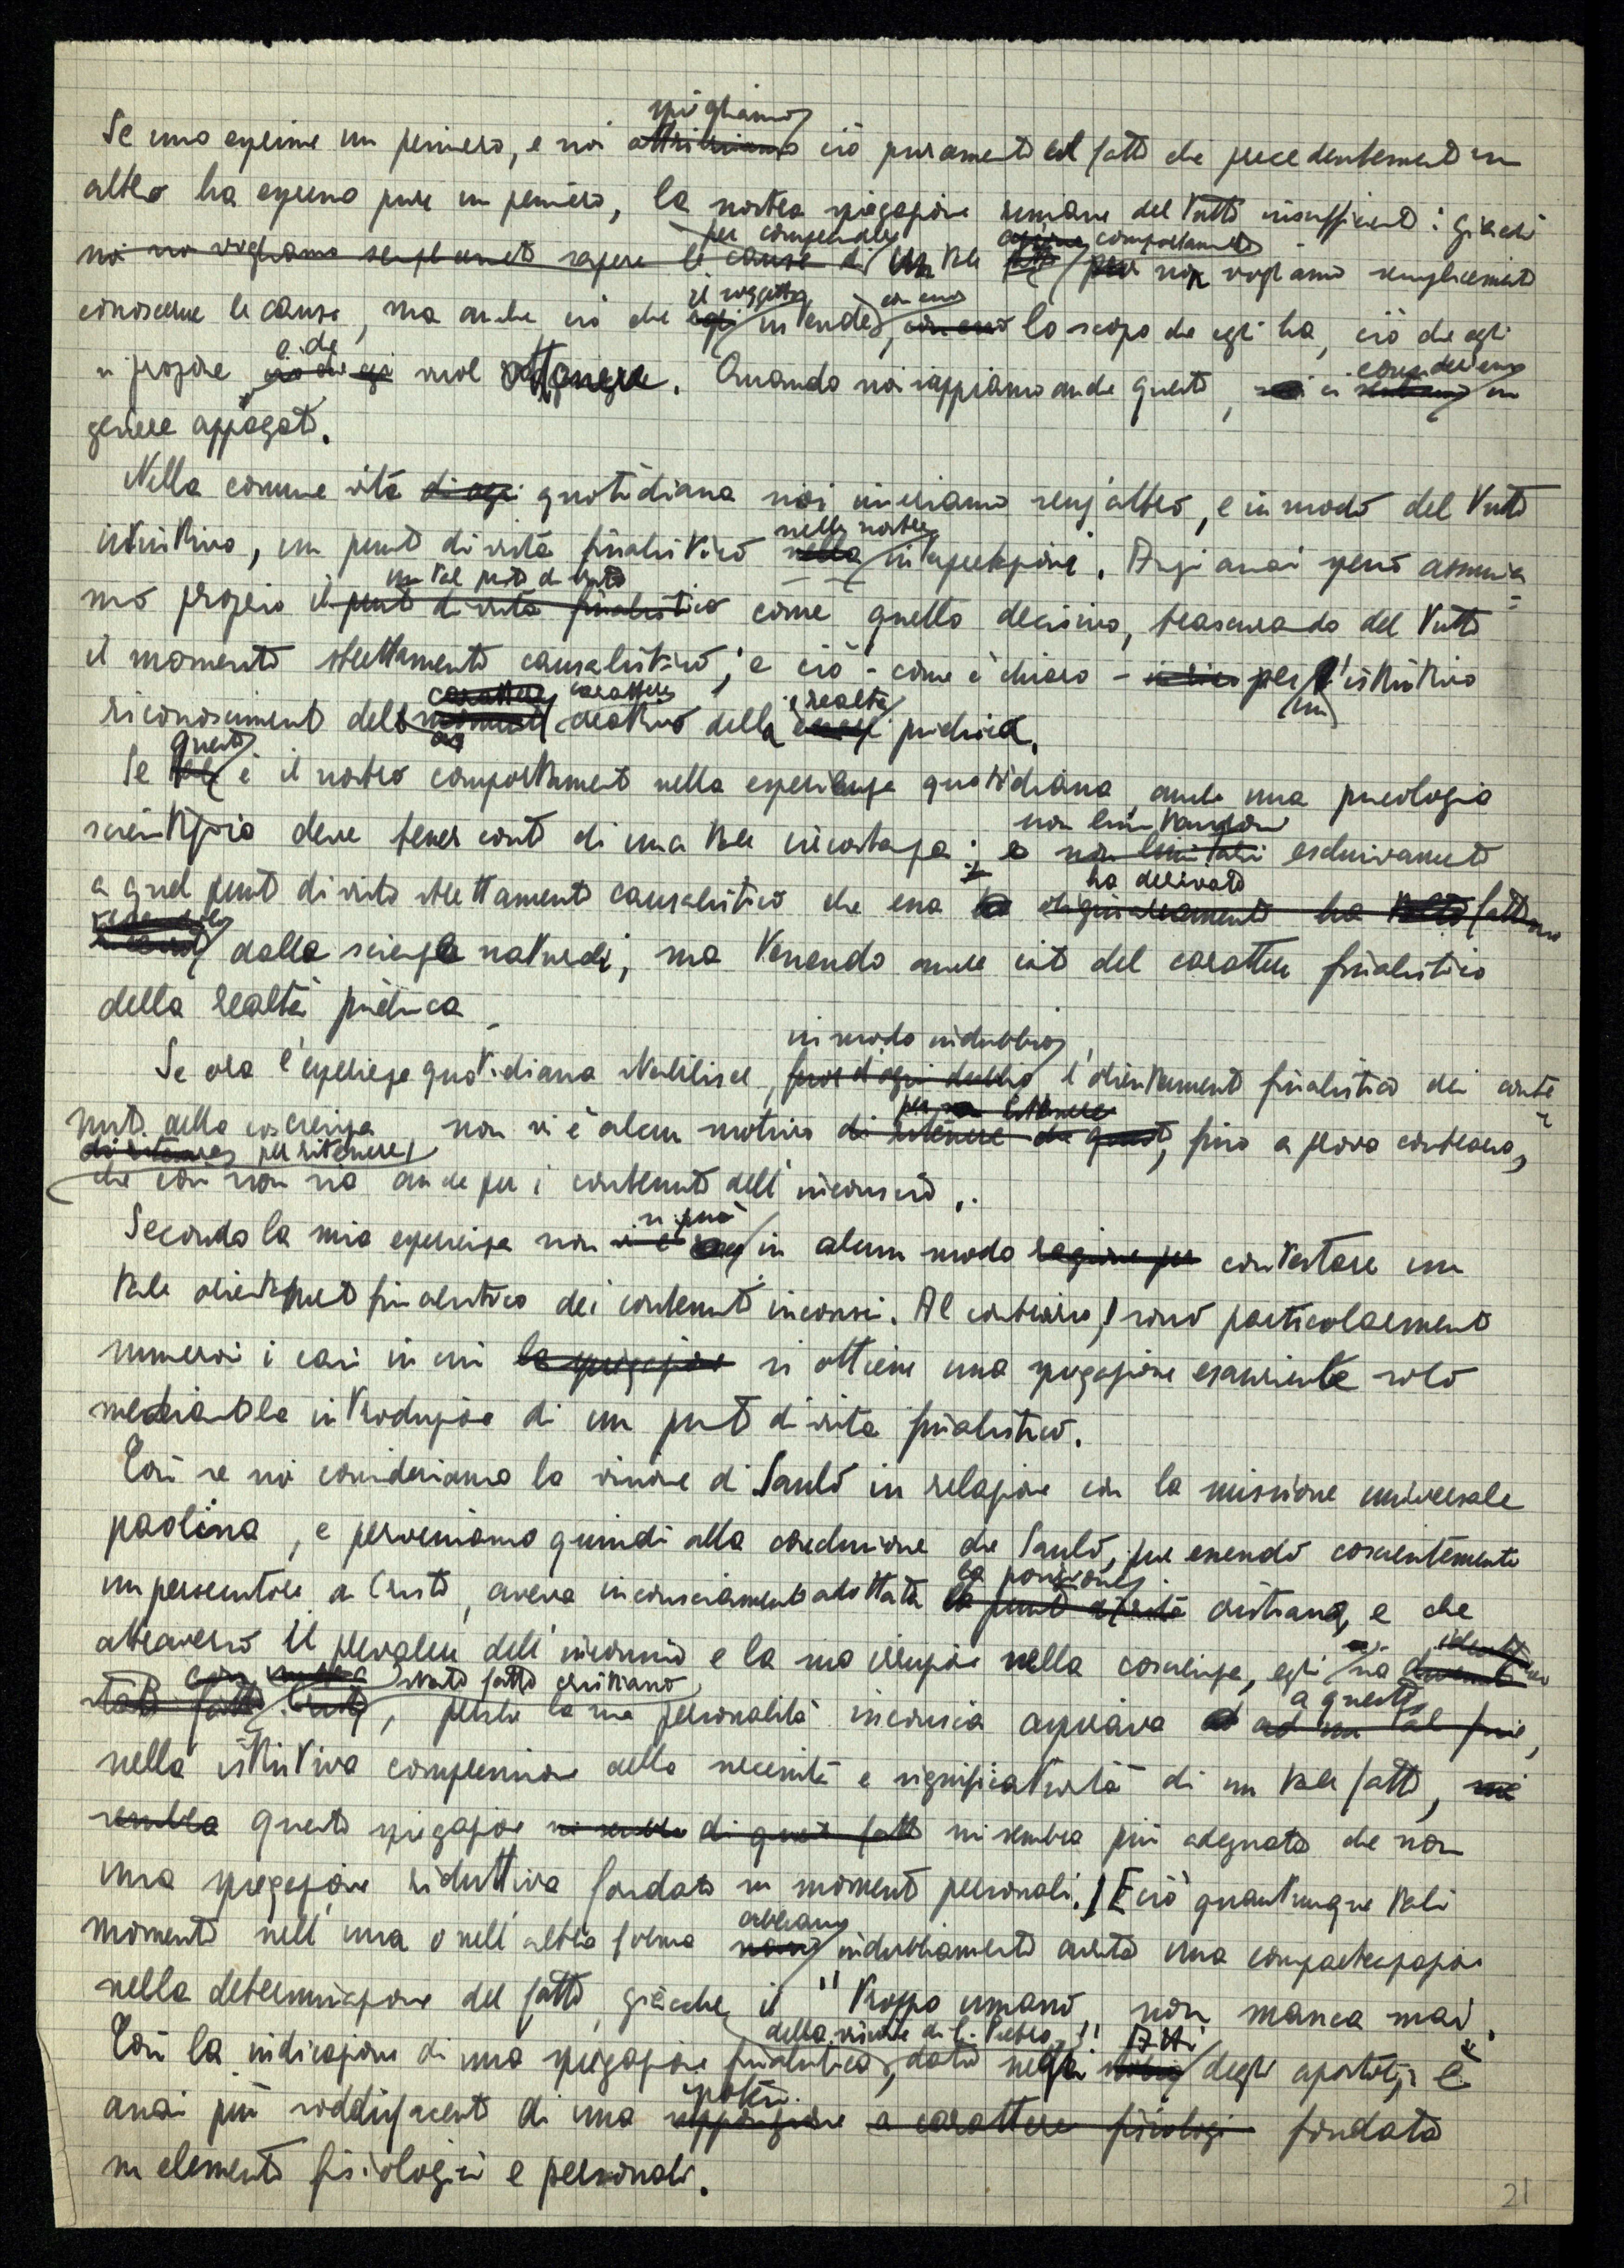 spieghiamo
Se uno esprime un pensiero, e noi attribuiamo ciò puramente al fatto che precedentemente un
altro ha espresso pure un pensiero, la nostra spiegazione rimane del tutto insufficiente: giacchè
per comprendere comportamento
noi non vogliamo semplicemente sapere le cause di un tale non vogliamo semplicemente
il soggetto con esso
conoscerne le cause, ma anche ciò che egli intende, con esso lo scopo che egli ha, ciò che egli
e che
si propone ciò che egli vuol ottenere. Quando noi sappiamo anche questo, noi ci consideriamo in
genere appagati.
Nella comune vita di ogni quotidiana noi inseriamo senz'altro, e in modo del tutto
nella nostra
istintivo, un punto di vista finalistico nella interpretazione. Anzi assai spesso assumia=
un tal punto di vista
mo proprio il punto di vista finalistico come quello decisivo, trascurando del tutto
il momento strettamente causalistico; e ciò - come è chiaro - per l'istintivo
carattere carattere realtà
riconoscimento del momento creativo della psichica.
questo
Se tale è il nostro comportamento nella esperienza quotidiana, anche una psicologia
non limitandosi
scientifica deve tener conto di una tale circostanza; e non limitarsi esclusivamente
ha derivato
a quel punto di vista strettamente causalistico che essa ha originariamente ha tratto
dalla scienza naturale, ma tenendo anche conto del carattere finalistico
della realtà psichica
in modo indubbio
Se ora l'esperienza quotidiana stabilisce, fuor d'ogni dubbio l'orientamento finalistico dei conte=
per ritenere
nuti della coscienza non vi è alcun motivo di ritenere che questo, fino a prova contraria,
di ritenere per ritenere
che così non sia anche per i contenuti dell'inconscio.
si può
Secondo la mia esperienza non vi è in alcun modo ragione per contestare un
tale orientamento finalistico dei contenuti inconsci. Al contrario, sono particolarmente
numerosi i casi in cui la spiegazione si ottiene una spiegazione esauriente solo
mediante la introduzione di un punto di vista finalistico.
Così se noi consideriamo la visione di Saulo in relazione con la missione universale
paolina, e perveniamo quindi alla conclusione che Saulo, pur essendo coscientemente
la posizione
un persecutore di Cristo, aveva inconsciamente adottata il punto di vista cristiana, e che
attraverso il prevalere dell'inconscio e la sua irruzione nella coscienza, egli sia
stato fatto cristiano
stato fatto Cristo, perchè la sua personalità inconscia aspirava a questo ad un tal fine,
nella istintiva comprensione della necessità e significatività di un tale fatto, mi
sembra questa spiegazione mi sembra di questo fatto mi sembra più adeguata che non
una spiegazione riduttiva fondata su momenti personali. E ciò quantunque tali
abbiano
momenti nell'una o nell'altra forma indubbiamente avuto una compartecipazione
nella determinazione del fatto, giacchè il "troppo umano" non manca mai.
della visione di S. Pietro Atti
Così la indicazione di una spiegazione finalistica, data negli degli apostoli, è
ipotesi
assai più soddisfacente di una supposizione a carattere fisiologi fondata
su elementi fisiologici e personali.
21